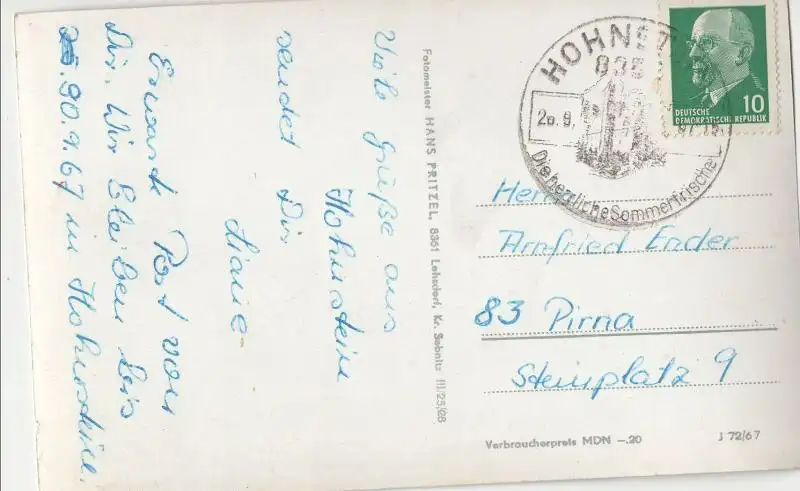 Viele Grüße aus
Hohnstein
sendet Dir
Erwarte Post von
Dir. Wir bleiben bis
30.9.67 in Hohnstein.
Fotomeister HANS PRITZEL, 8361 Lohsdorf, Kr. Sebnitz III/25/28
HOHNST
20.9.
Die herrliche Sommerfrische
DEUTSCHE
DEMOKRATISCHE REPUBLIK
10
Herrn
Arnfried Ender
83 Pirna
Steinplatz 9
Verbraucherpreis MDN –.20
J 72/67